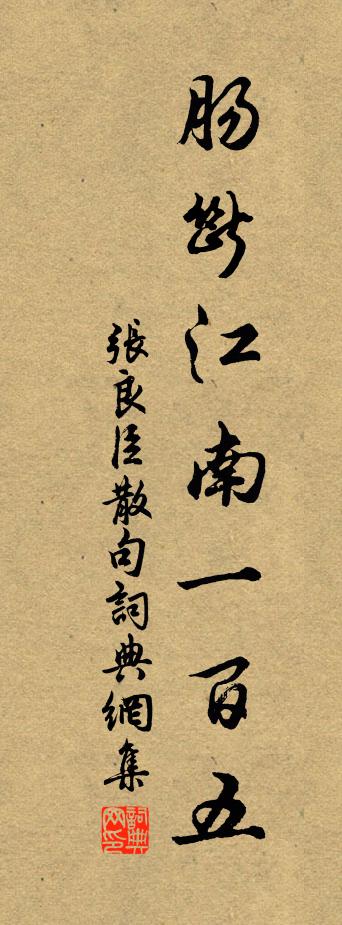 腸斷江南一百五
張良臣散句詞典網集
詞典网印